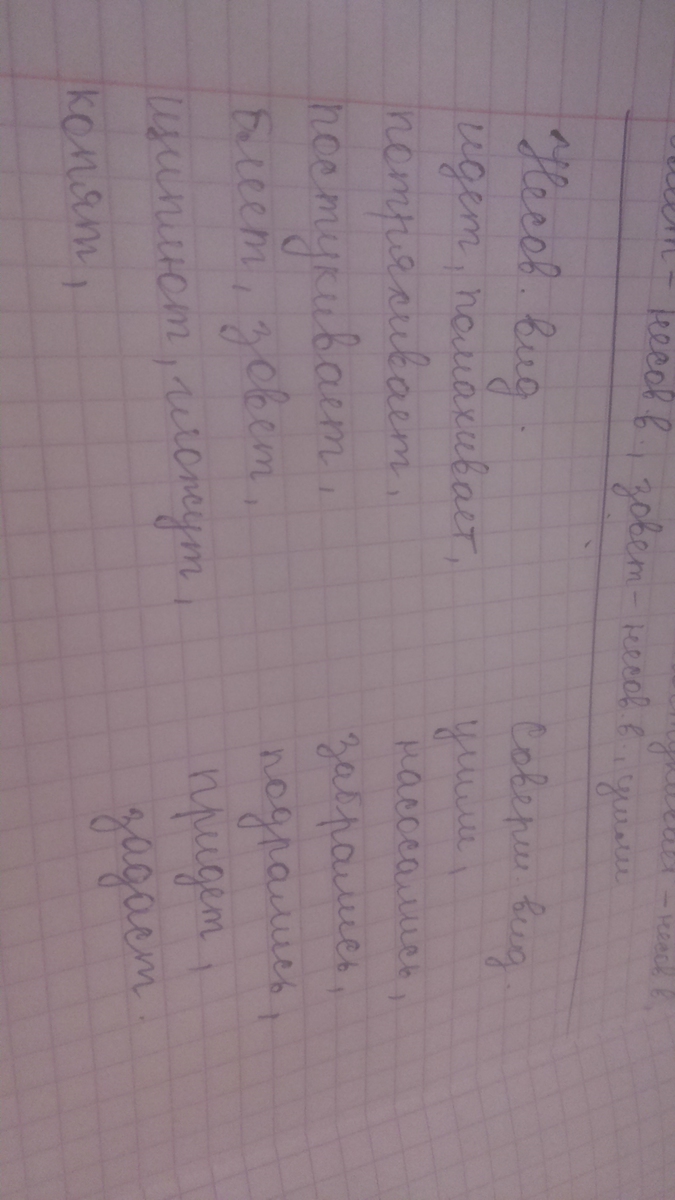 - несов в,
- несов в., зовет - несов.в., ушли
Несов. вид.
идет, помахивает,
потряхивает,
постукивает,
блеет, зовет,
щиплют, гложут,
копят,
Соверш. вид.
ушли,
насосались,
забрались,
подрались,
придет,
задаст.